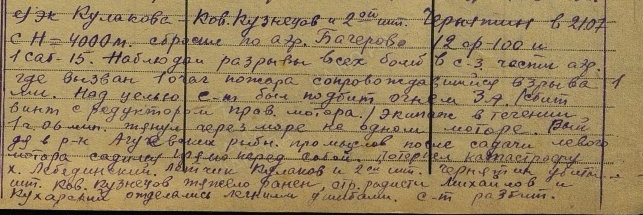 е) эк Кулакова – Ков. Кузнецов и 2ой шт. Черняткин в 21.07
с Н=4000м. сбросил по аэр. Багерово 12 фр-100 и
1 саб-15. Наблюдал разрывы всех бомб в с-з. части аэр.
где вызван 1 очаг пожара сопровождавшийся взрыва-
ми. Над целью с-т был подбит огнем ЗА. (сбит
винт с редуктором прав. мотора.) экипаж в течении
1 ч. 06 мин. тянул через море на одном моторе.
в р-н рыбн. промыслов после сдачи левого
мотора садился перед собой. потерпел катастрофу
х. Лебединский. Летчик Кулаков и 2ой шт. убиты
шт. Ков. Кузнецов тяжело ранен, стр. радисты Михайлов и
Кухаренко отделались легкими ушибами. с-т разбит.